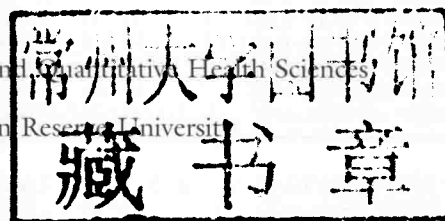 常州大学图书馆
nd Quantitative Health Sciences
n Reserve University
藏书章